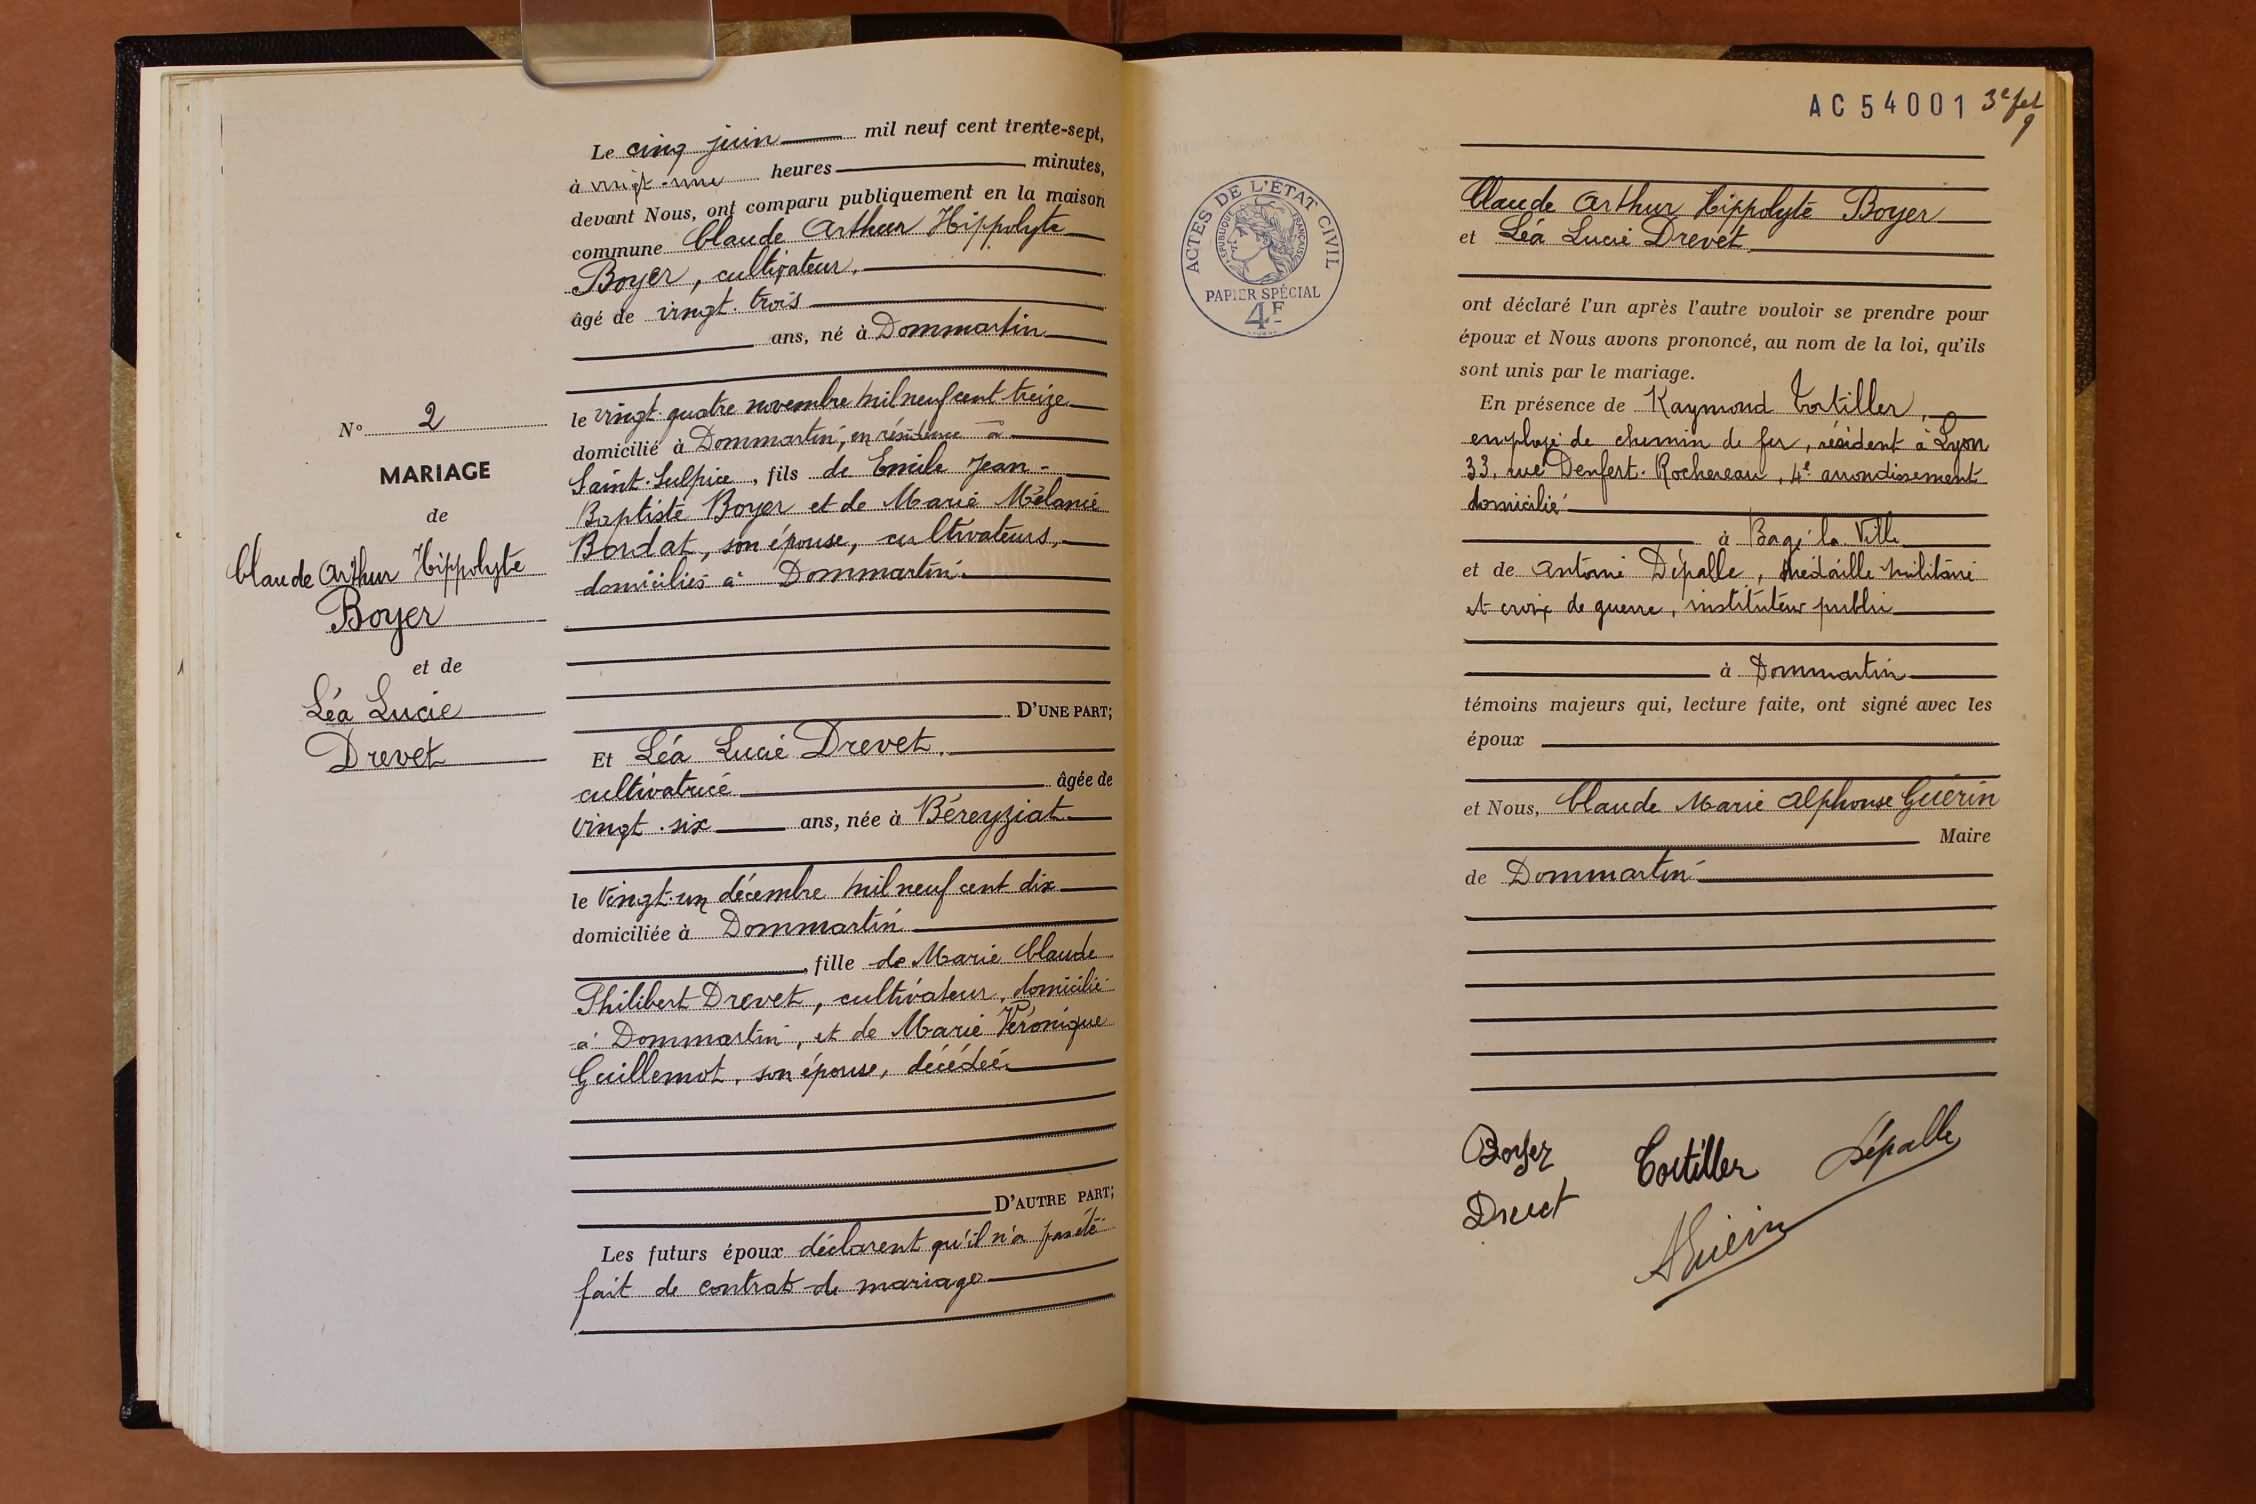 Le cinq juin mil neuf cent trente-sept,
à vingt-une heures minutes,
devant Nous, ont comparu publiquement en la maison
commune Claude Arthur Hippolyte
Boyer, cultivateur,
âgé de vingt-trois
ans, né à Dommartin
le vingt-quatre novembre mil neuf cent treize
domicilié à Dommartin, en résidence à
Saint-Sulpice, fils de Emile Jean-
Baptiste Boyer et de Marie Mélanie
Bordat, son épouse, cultivateurs,
domiciliés à Dommartin.
D'UNE PART;
Et Léa Lucie Drevet,
cultivatrice âgée de
vingt-six ans, née à Béreyziat
le vingt-un décembre mil neuf cent dix
domiciliée à Dommartin
, fille de Marie Claude
Philibert Drevet, cultivateur, domicilié
à Dommartin, et de Marie Véronique
Guillemot, son épouse, décédée.
D'AUTRE PART;
Les futurs époux déclarent qu'il n'a pas été
fait de contrat de mariage
N° 2
MARIAGE
de
Claude Arthur Hippolyte
Boyer
et de
Léa Lucie
Drevet
AC 54001 3e fet
9
ACTES DE L'ÉTAT CIVIL
RÉPUBLIQUE FRANÇAISE
PAPIER SPÉCIAL
4F
Claude Arthur Hippolyte Boyer
et Léa Lucie Drevet
ont déclaré l'un après l'autre vouloir se prendre pour
époux et Nous avons prononcé, au nom de la loi, qu'ils
sont unis par le mariage.
En présence de Raymond Tortiller,
employé de chemin de fer, résident à Lyon
33, rue Denfert-Rochereau, 4e arrondissement
domicilié
à Bagé-la-Ville
et de Antoine Dépalle, médaille militaire
et croix de guerre, instituteur public
à Dommartin
témoins majeurs qui, lecture faite, ont signé avec les
époux
et Nous, Claude Marie Alphonse Guérin
Maire
de Dommartin
Boyer Tortiller Dépalle
Drevet
AGuérin